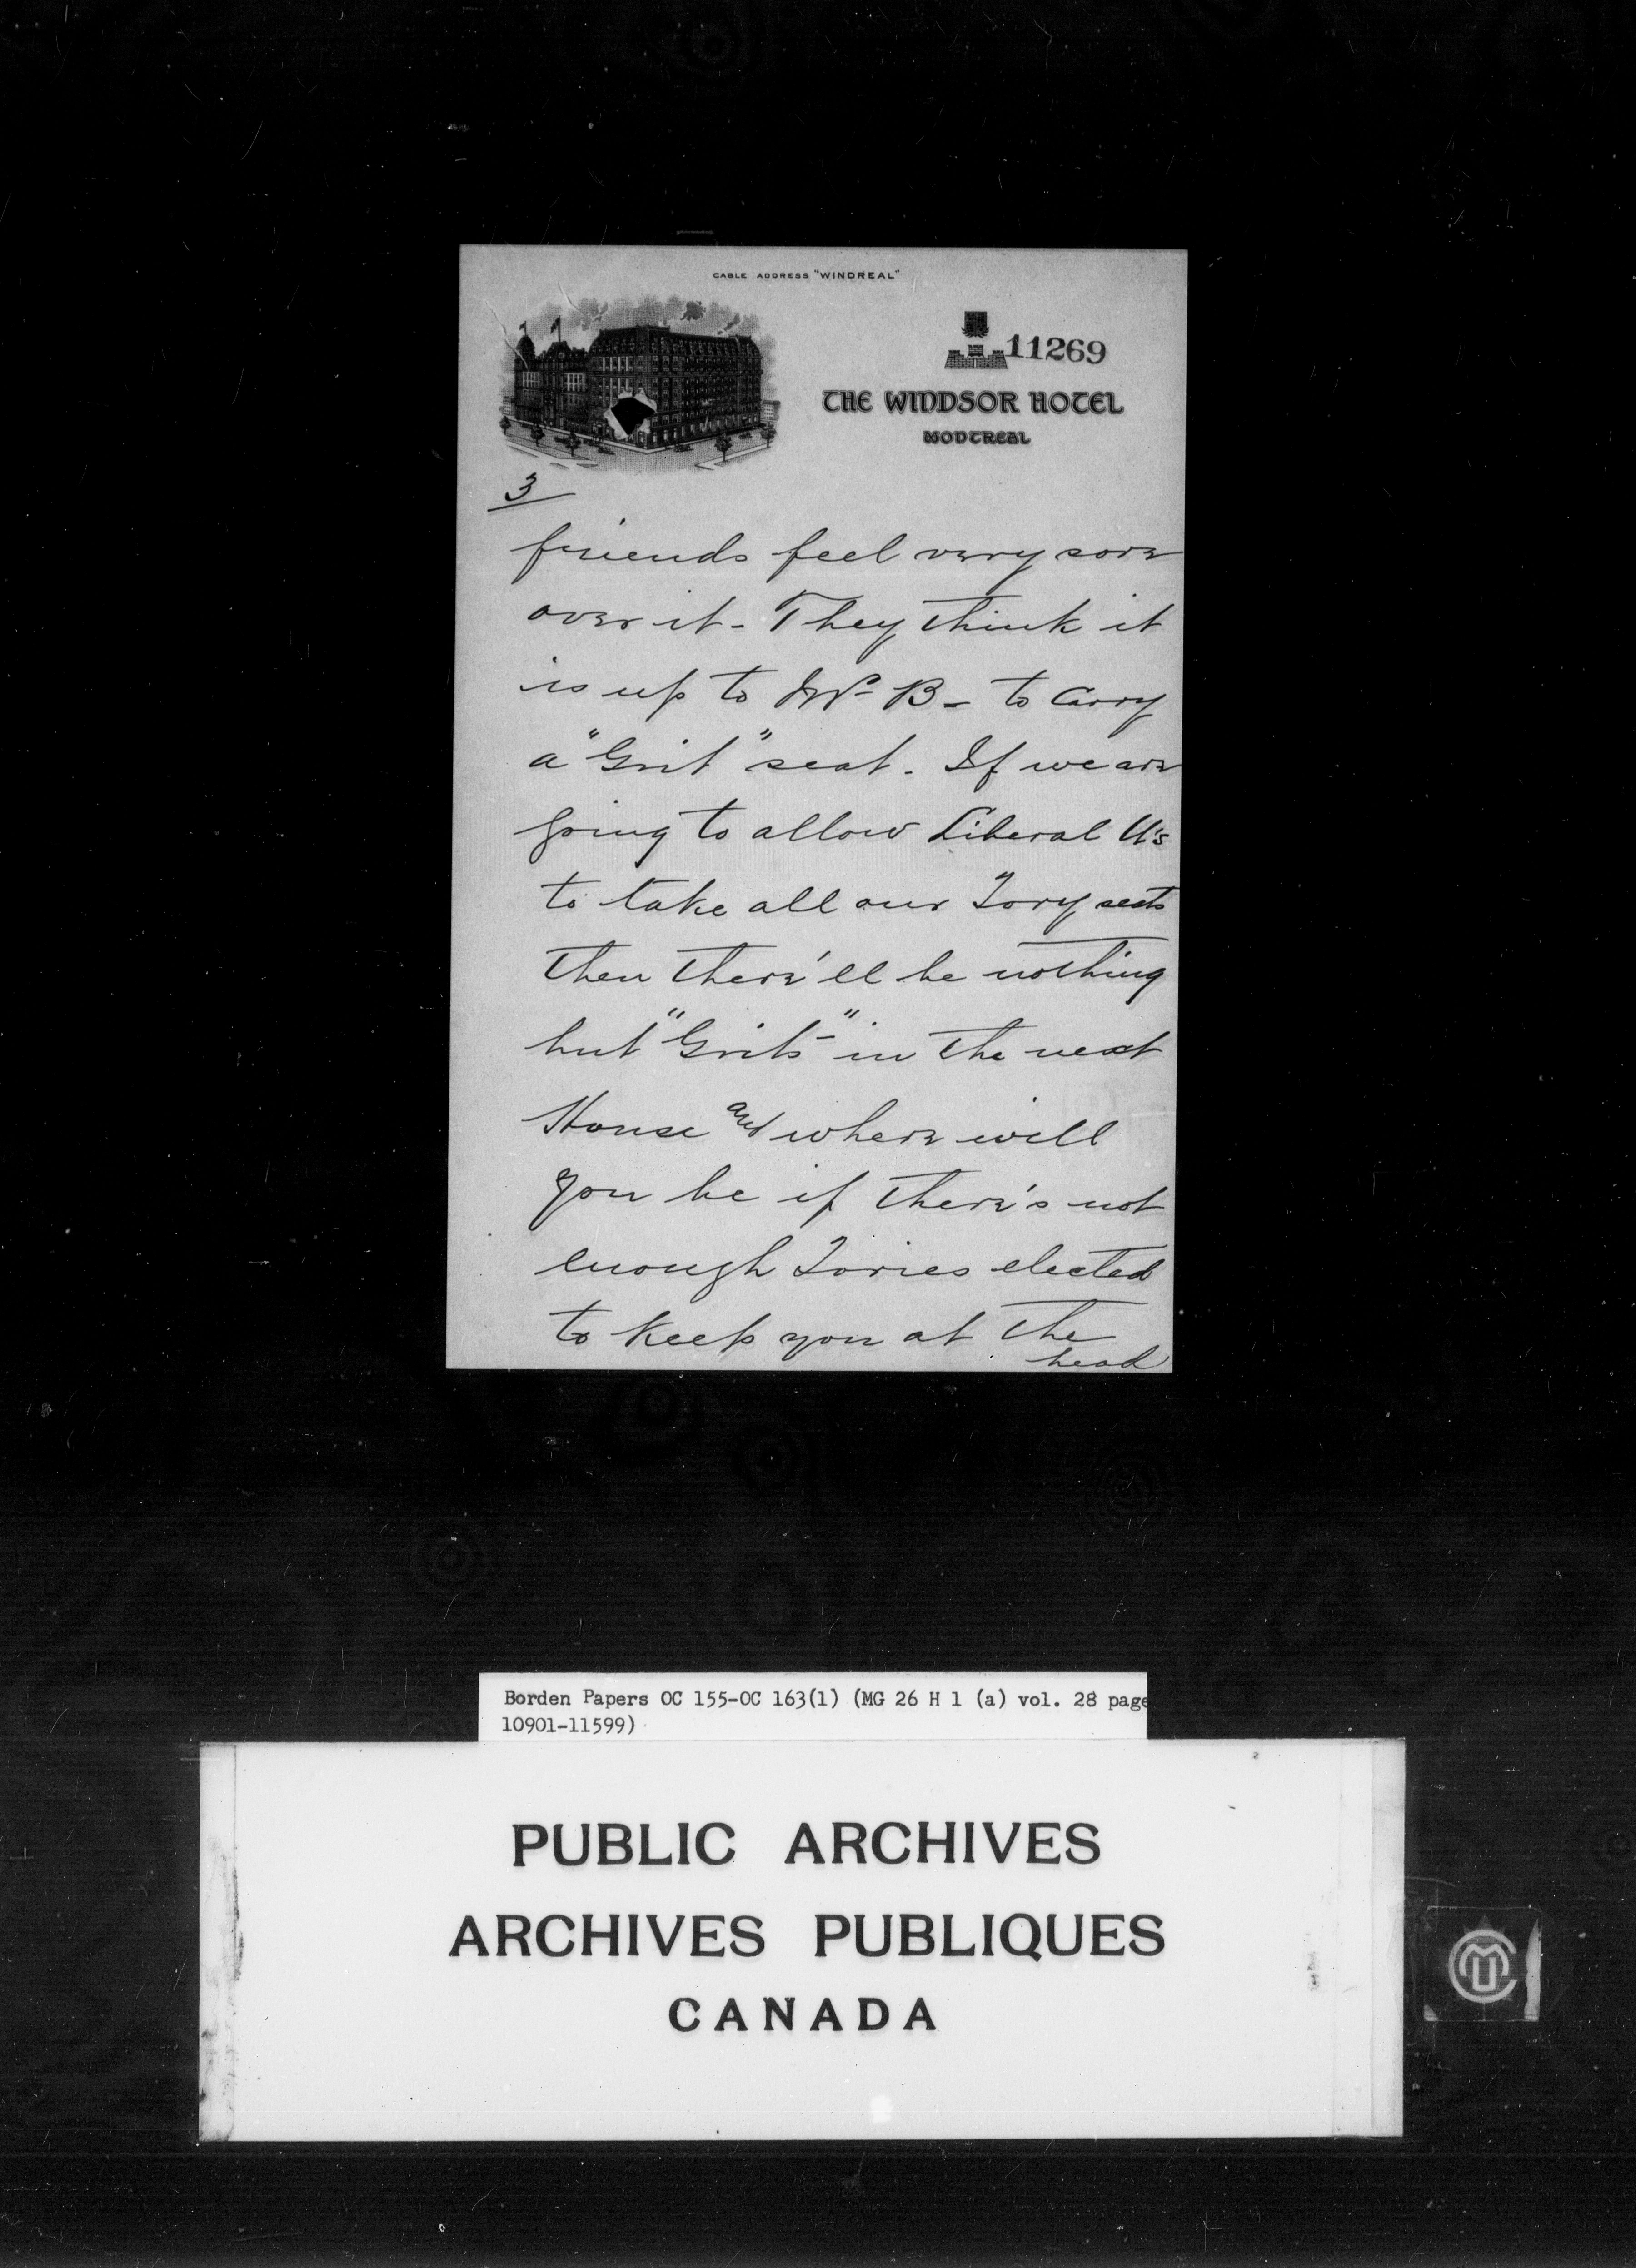 CABLE ADDRESS "WINDREAL"
11269
THE WINDSOR HOTEL
MONTREAL
3
friends feel very sore
over it - They think it
is up to Mr B - to carry
a "Grit" seat. If we are
going to allow Liberal U's
to take all our Tory seats
then there'll be nothing
but "Grits" in the next
House and where will
you be if there's not
enough Tories elected
to keep you at the
head
Borden Papers OC 155-OC 163(1) (MG 26 H 1 (a) vol. 28 page
10901-11599)
PUBLIC ARCHIVES
ARCHIVES PUBLIQUES
CANADA